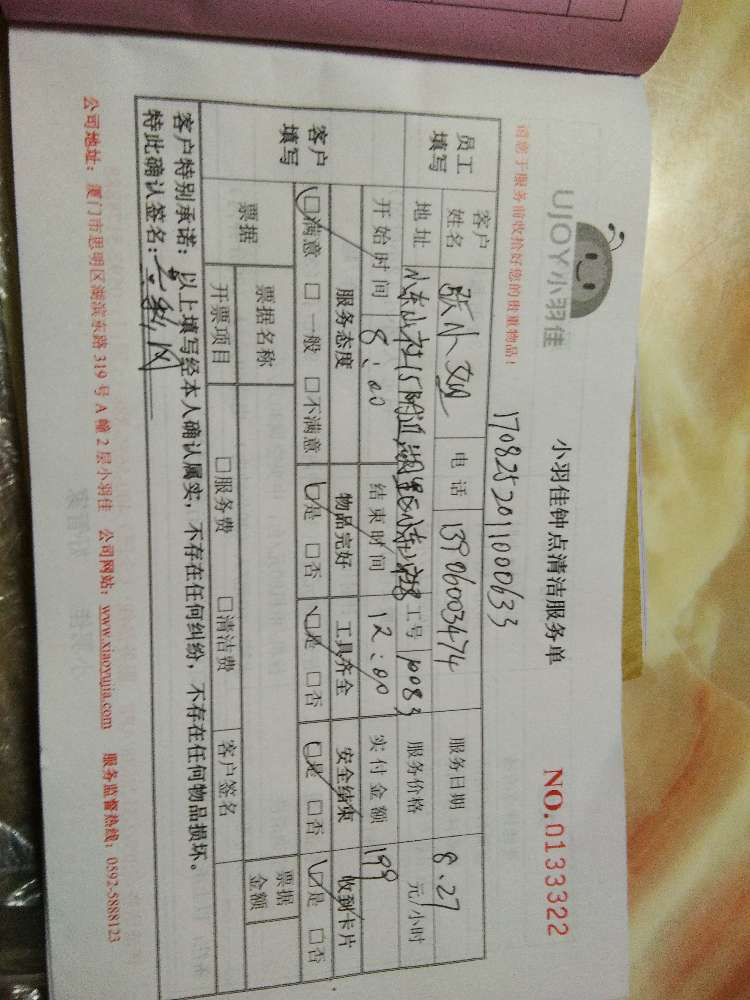 UJOY小羽佳
小羽佳钟点清洁服务单
NO.0133322
请您于服务前收拾好您的贵重物品!
1708252011000633
员工填写 客户姓名 张小 电话 13906003474 服务日期 8.27
地址 工号 服务价格 元/小时
开始时间 8:00 结束时间 12:00 实付金额 199
客户填写 服务态度 物品完好 工具齐全 安全结束 收到卡片
□满意 □一般 □不满意 □是 □否 □是 □否 □是 □否 □是 □否
票据 票据名称 票据金额
开票项目 □服务费 □清洁费 客户签名
客户特别承诺:以上填写经本人确认属实,不存在任何纠纷,不存在任何物品损坏。
特此确认签名:
公司地址:厦门市思明区湖滨东路319号A幢2层小羽佳 公司网站:www.xiaoyujia.com 服务监督热线:0592-5888123